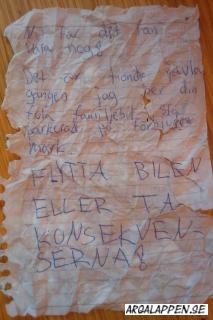 Nu får det fan
vara nog!
Det är tionde jävla
gången jag ser din
fula familjebil stå
parkerad på förbjuden
mark.
FLYTTA BILEN
ELLER TA
KONSEKVEN-
SERNA!
ARGALAPPEN.SE